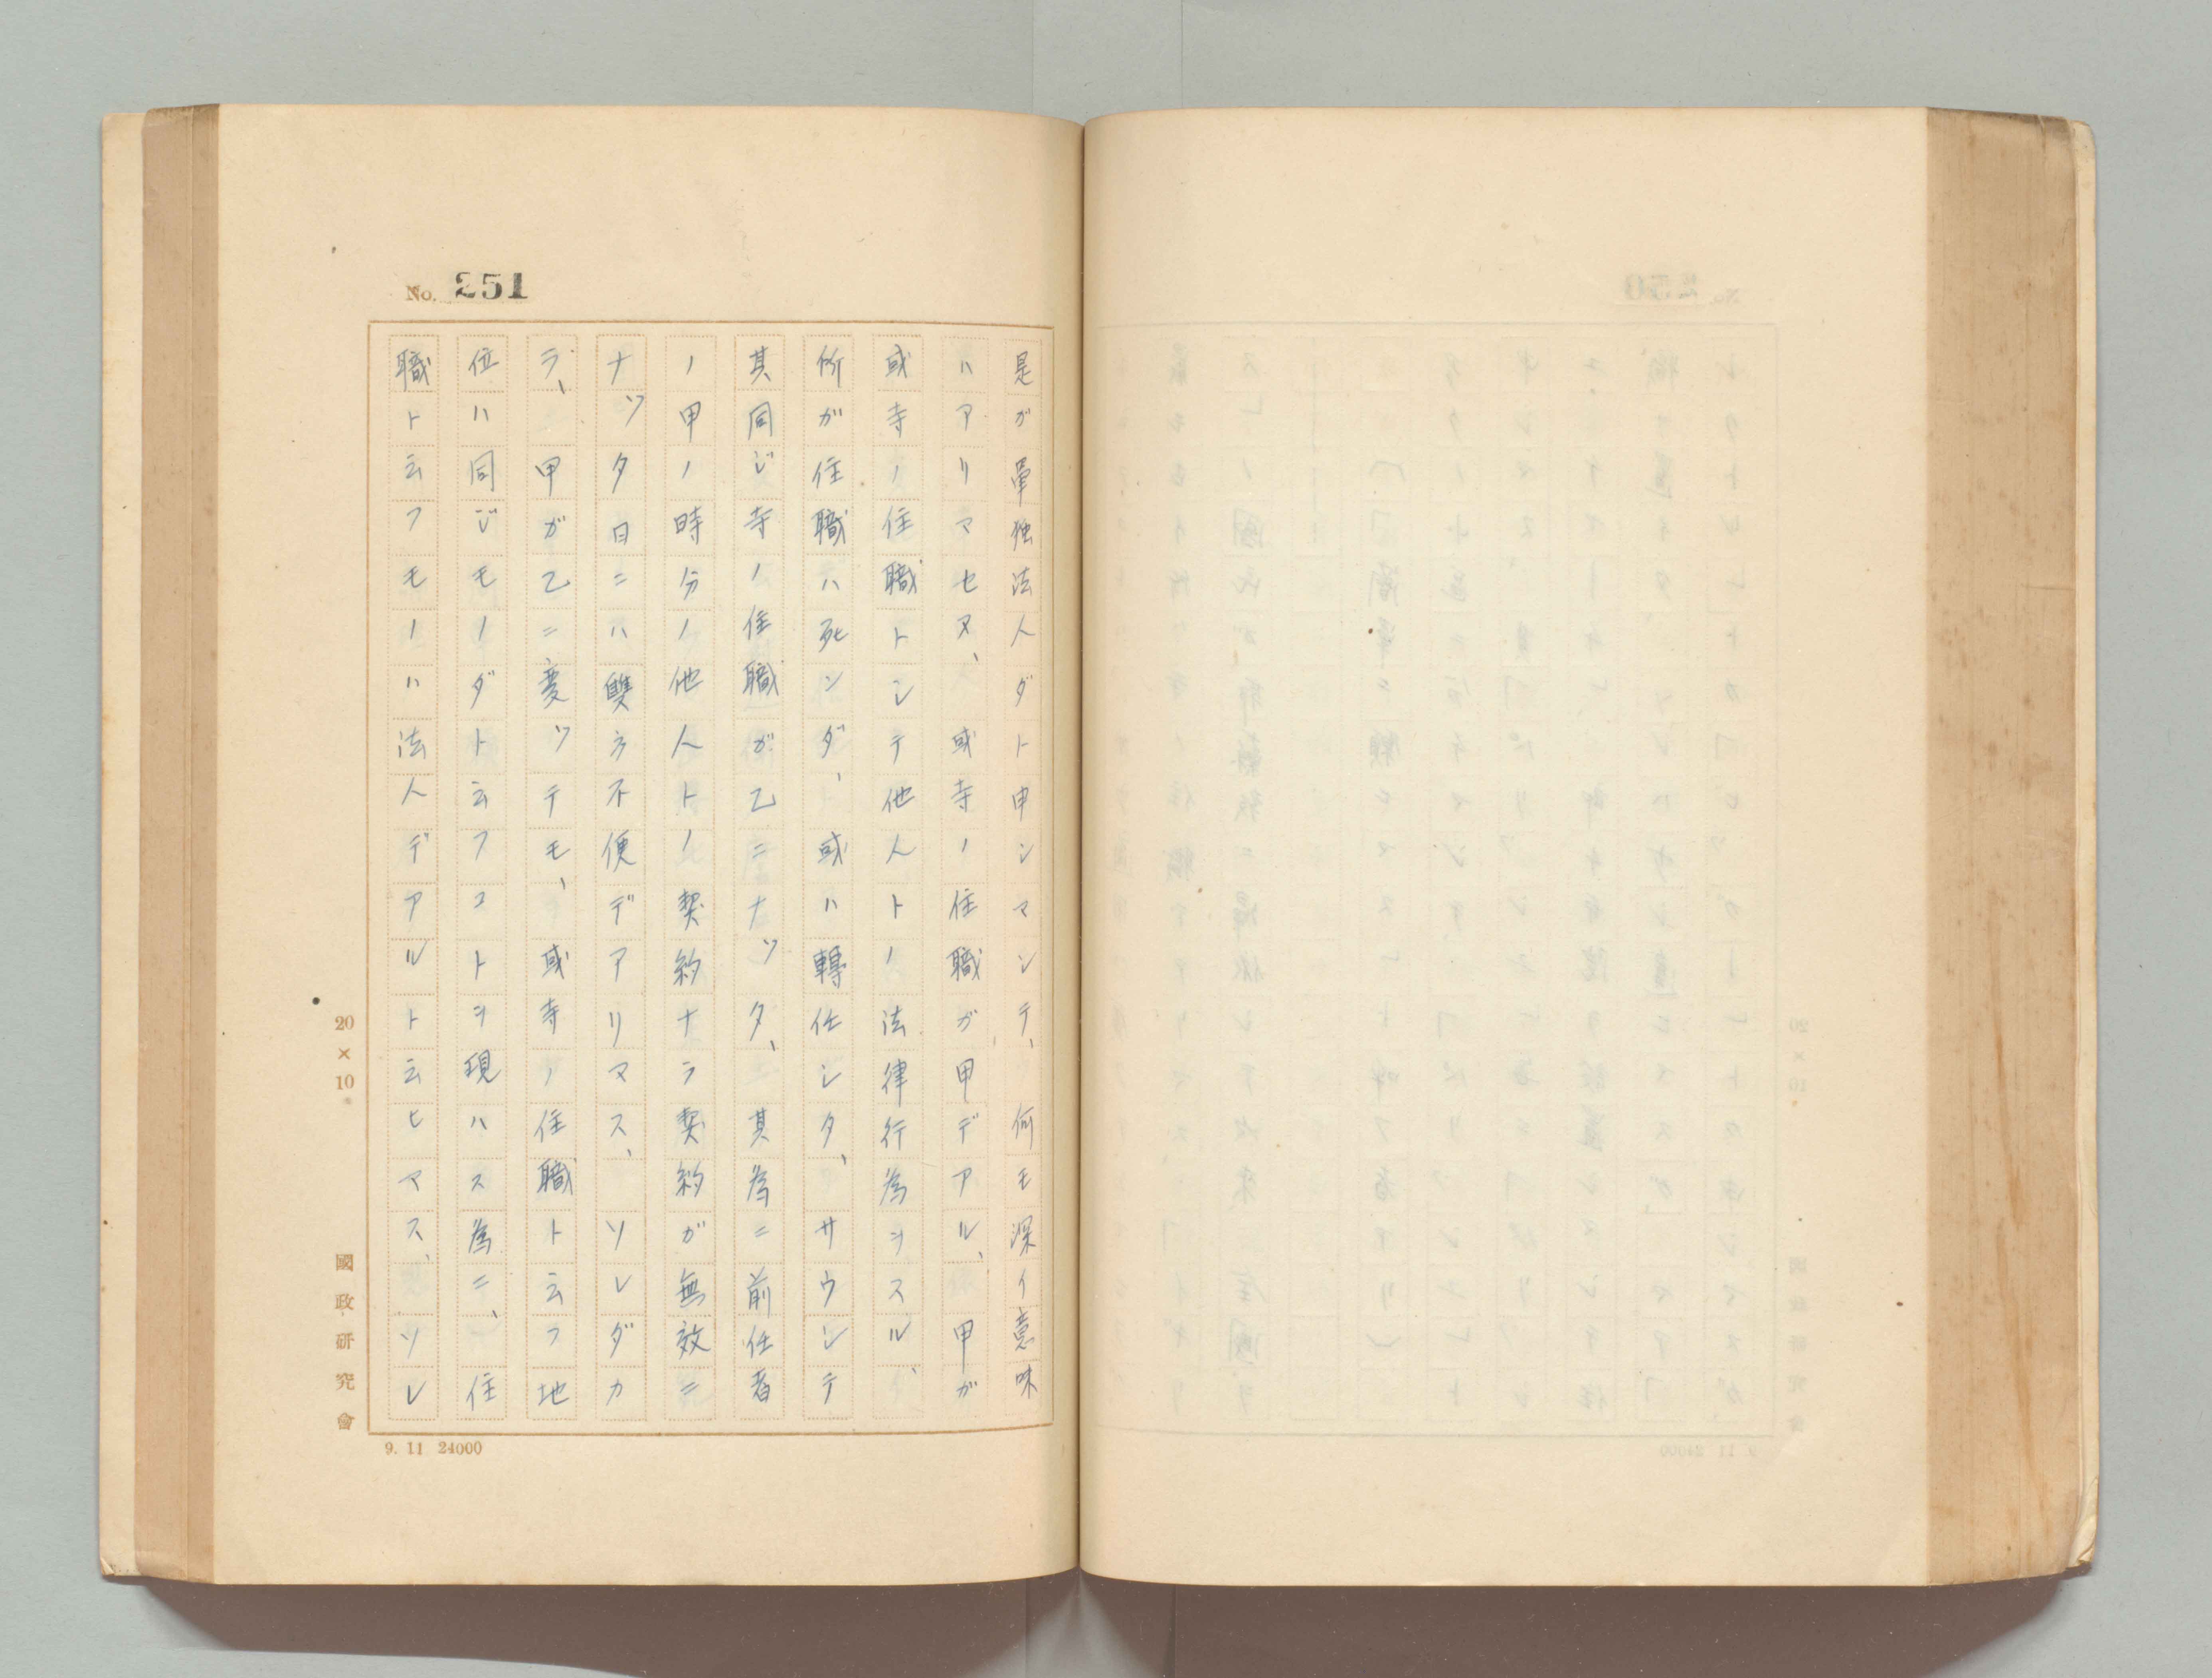 No. 251
是ガ單独法人ダト申シマシテ、何モ深イ意味
ハアリマセヌ、或寺ノ住職ガ甲デアル、甲ガ
或寺ノ住職トシテ他人トノ法律行為ヲスル、
所ガ住職ハ死ンダ、或ハ轉任シタ、サウシテ
其同ジ寺ノ住職ガ乙ニナツタ、其為ニ前任者
ノ甲ノ時分ノ他人トノ契約ナラ契約ガ無效ニ
ナツタ日ニハ雙方不便デアリマス、ソレダカ
ラ、甲ガ乙ニ変ツテモ、或寺ノ住職ト云フ地
位ハ同ジモノダト云フコトヲ現ハス為ニ、住
職ト云フモノハ法人デアルト云ヒマス、ソレ
20×10
國政研究會
9. 11 24000